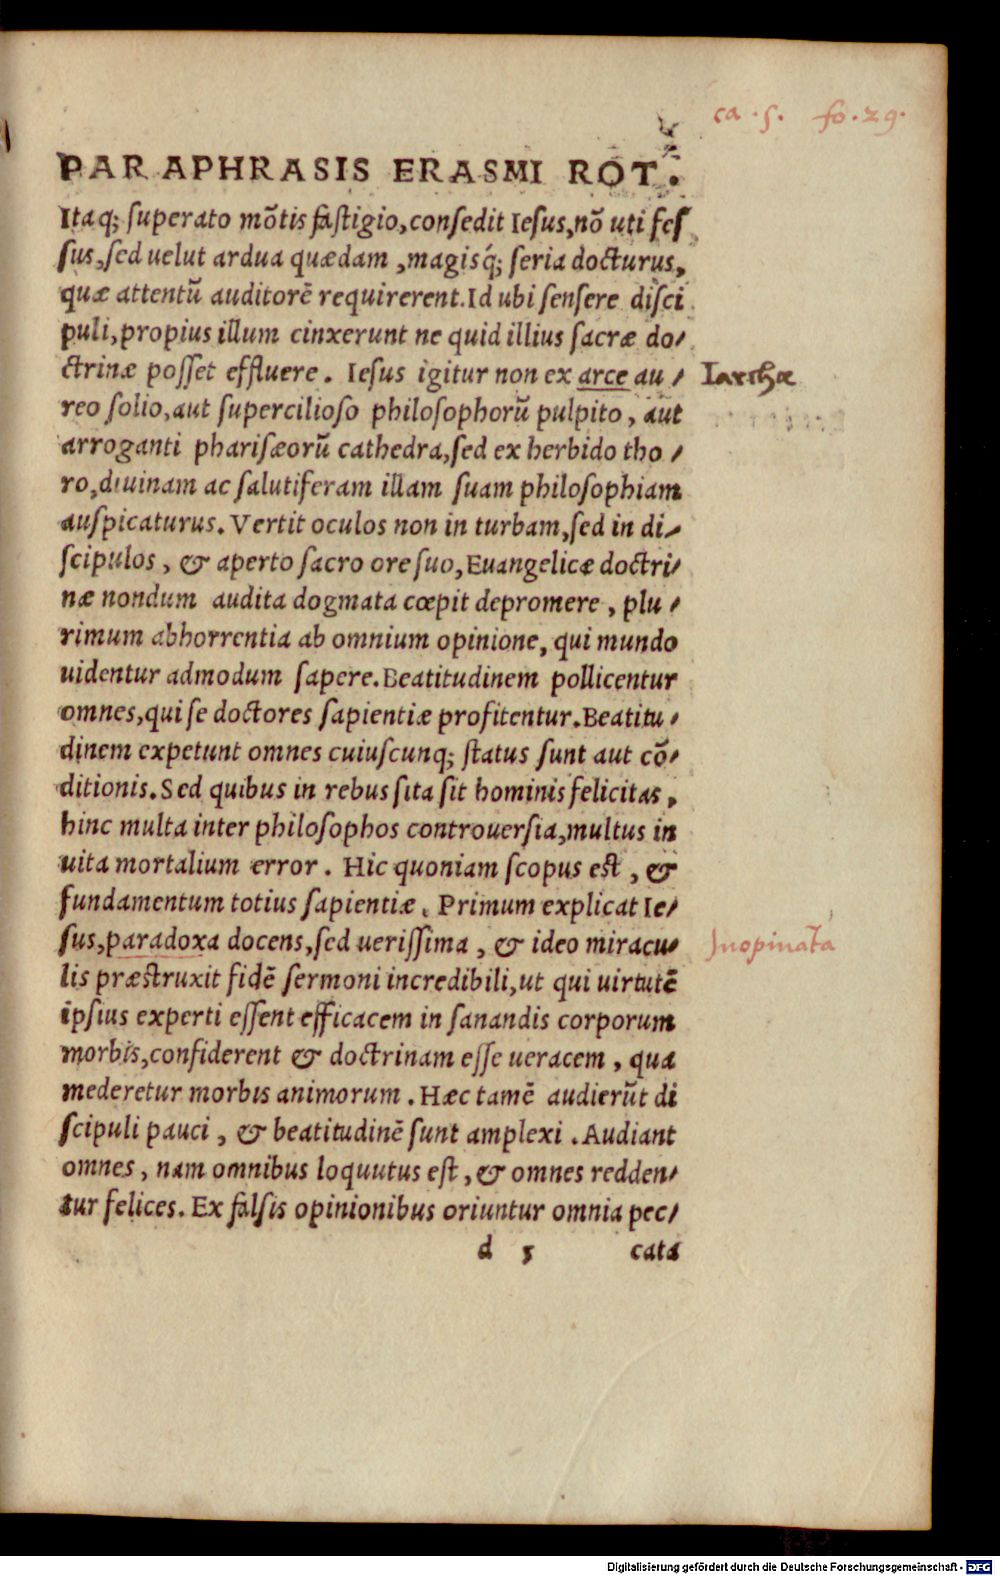 ca . 5. fo . 29.
PARAPHRASIS ERASMI ROT.
Itaq; ſuperato mõtis faſtigio, conſedit Ieſus, nõ uti feſ
ſus, ſed uelut ardua quædam, magisq́; ſeria docturus,
quæ attentũ auditorẽ requirerent. Id ubi ſenſere diſci
puli, propius illum cinxerunt ne quid illius ſacræ do/
ctrinæ poſſet effluere. Ieſus igitur non ex arce au/ Iarchæ
reo ſolio, aut ſupercilioſo philoſophorũ pulpito, aut
arroganti phariſæorũ cathedra, ſed ex herbido tho/
ro, diuinam ac ſalutiferam illam ſuam philoſophiam
auſpicaturus. Vertit oculos non in turbam, ſed in di/
ſcipulos, & aperto ſacro ore ſuo, Euangelicæ doctri/
næ nondum audita dogmata cœpit depromere, plu/
rimum abhorrentia ab omnium opinione, qui mundo
uidentur admodum ſapere. Beatitudinem pollicentur
omnes, qui ſe doctores ſapientiæ profitentur. Beatitu/
dinem expetunt omnes cuiuſcunq; ſtatus ſunt aut cõ/
ditionis. Sed quibus in rebus ſita ſit hominis felicitas,
hinc multa inter philoſophos controuerſia, multus in
uita mortalium error. Hic quoniam ſcopus eſt, &
fundamentum totius ſapientiæ. Primum explicat Ie/
ſus, paradoxa docens, ſed ueriſſima, & ideo miracu/ Inopinata
lis præſtruxit fidẽ ſermoni incredibili, ut qui uirtutẽ
ipſius experti eſſent efficacem in ſanandis corporum
morbis, confiderent & doctrinam eſſe ueracem, qua
mederetur morbis animorum. Hæc tamẽ audierũt di
ſcipuli pauci, & beatitudinẽ ſunt amplexi. Audiant
omnes, nam omnibus loquutus eſt, & omnes redden/
tur felices. Ex falſis opinionibus oriuntur omnia pec/
d 5 cata
Digitalisierung gefördert durch die Deutsche Forschungsgemeinschaft - DFG